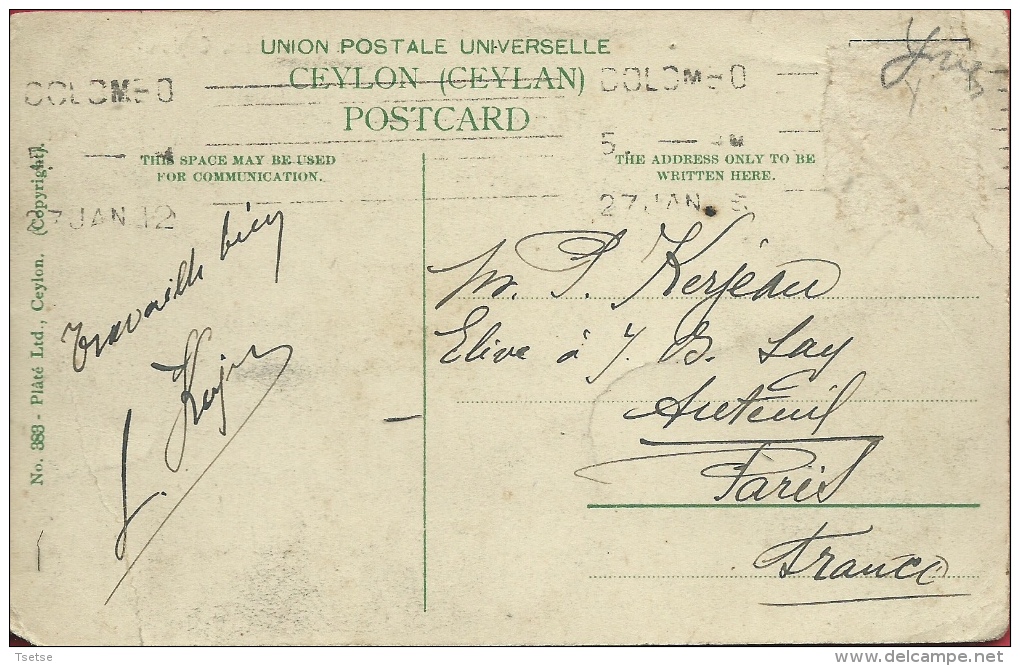 UNION POSTALE UNIVERSELLE
CEYLON (CEYLAN)
POSTCARD
COLOMBO
COLOMBO
27 JAN 12
27 JAN
THIS SPACE MAY BE USED
FOR COMMUNICATION.
THE ADDRESS ONLY TO BE
WRITTEN HERE.
No. 383 - Plâté Ltd., Ceylon. (Copyright).
travaille bien
L. Kerjean
M. P. Kerjean
Elève à J. B. Say
Auteuil
Paris
France
Tsetse
delcampe.net